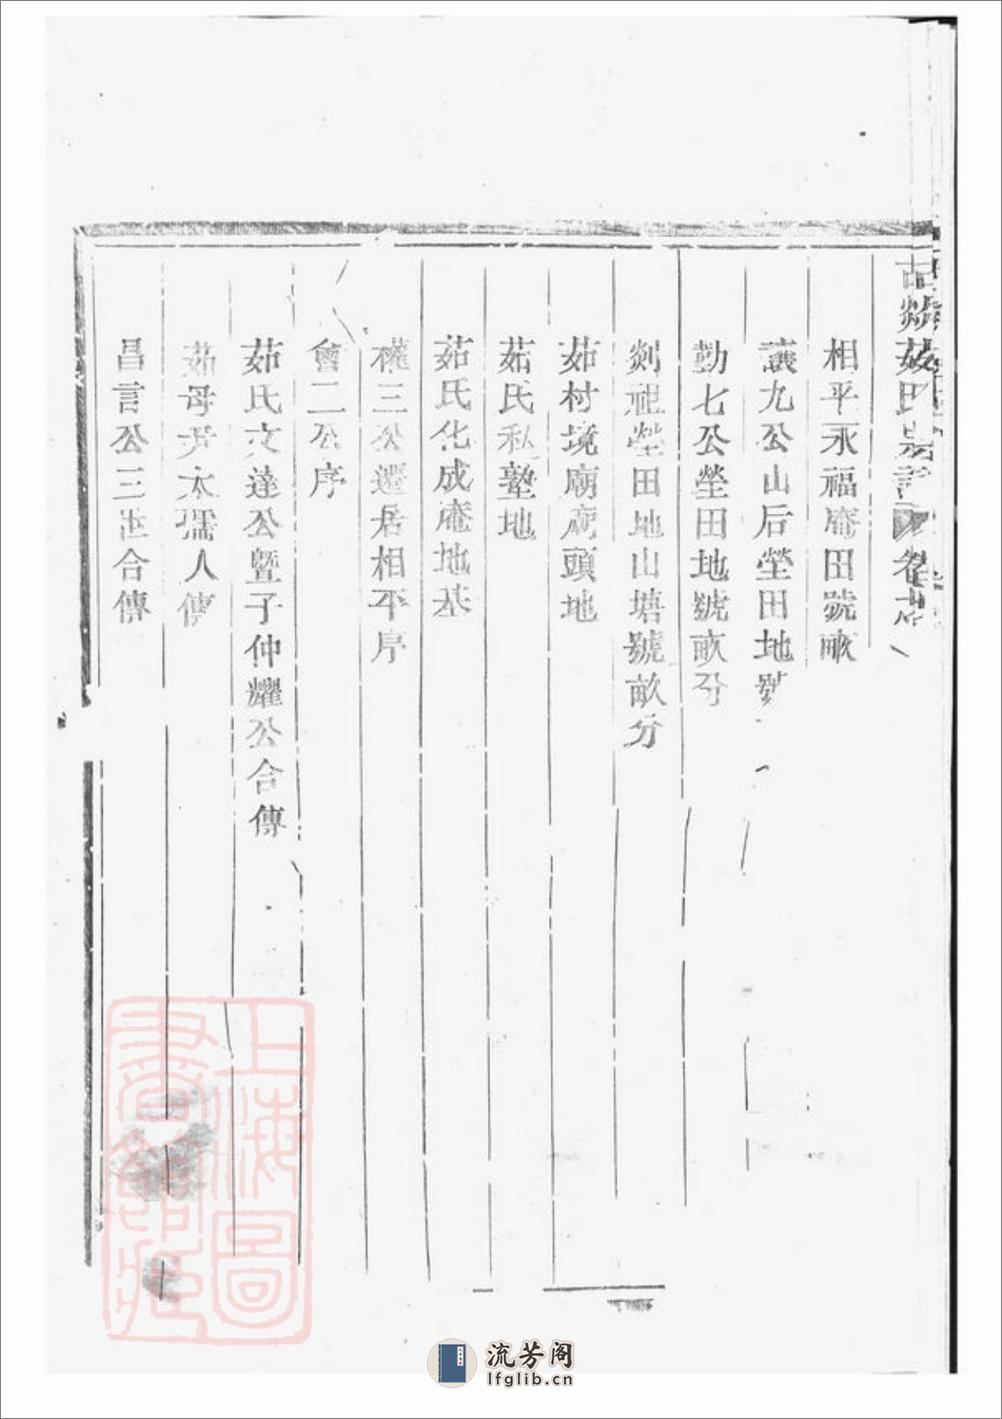 古 茹氏宗譜 卷
相平永福庵田號畝
議九公山后塋田地號
勤七公塋田地號畝分
剡祖塋田地山塘號畝分
茹村境廟廟頭地
茹氏私塾地
茹氏化成庵地基
權三公遷居相平序
會二公序
茹氏文達公暨子仲耀公合傳
茹母尹太孺人傳
昌言公三世合傳
上海圖書館藏
流芳阁
lfglib.cn